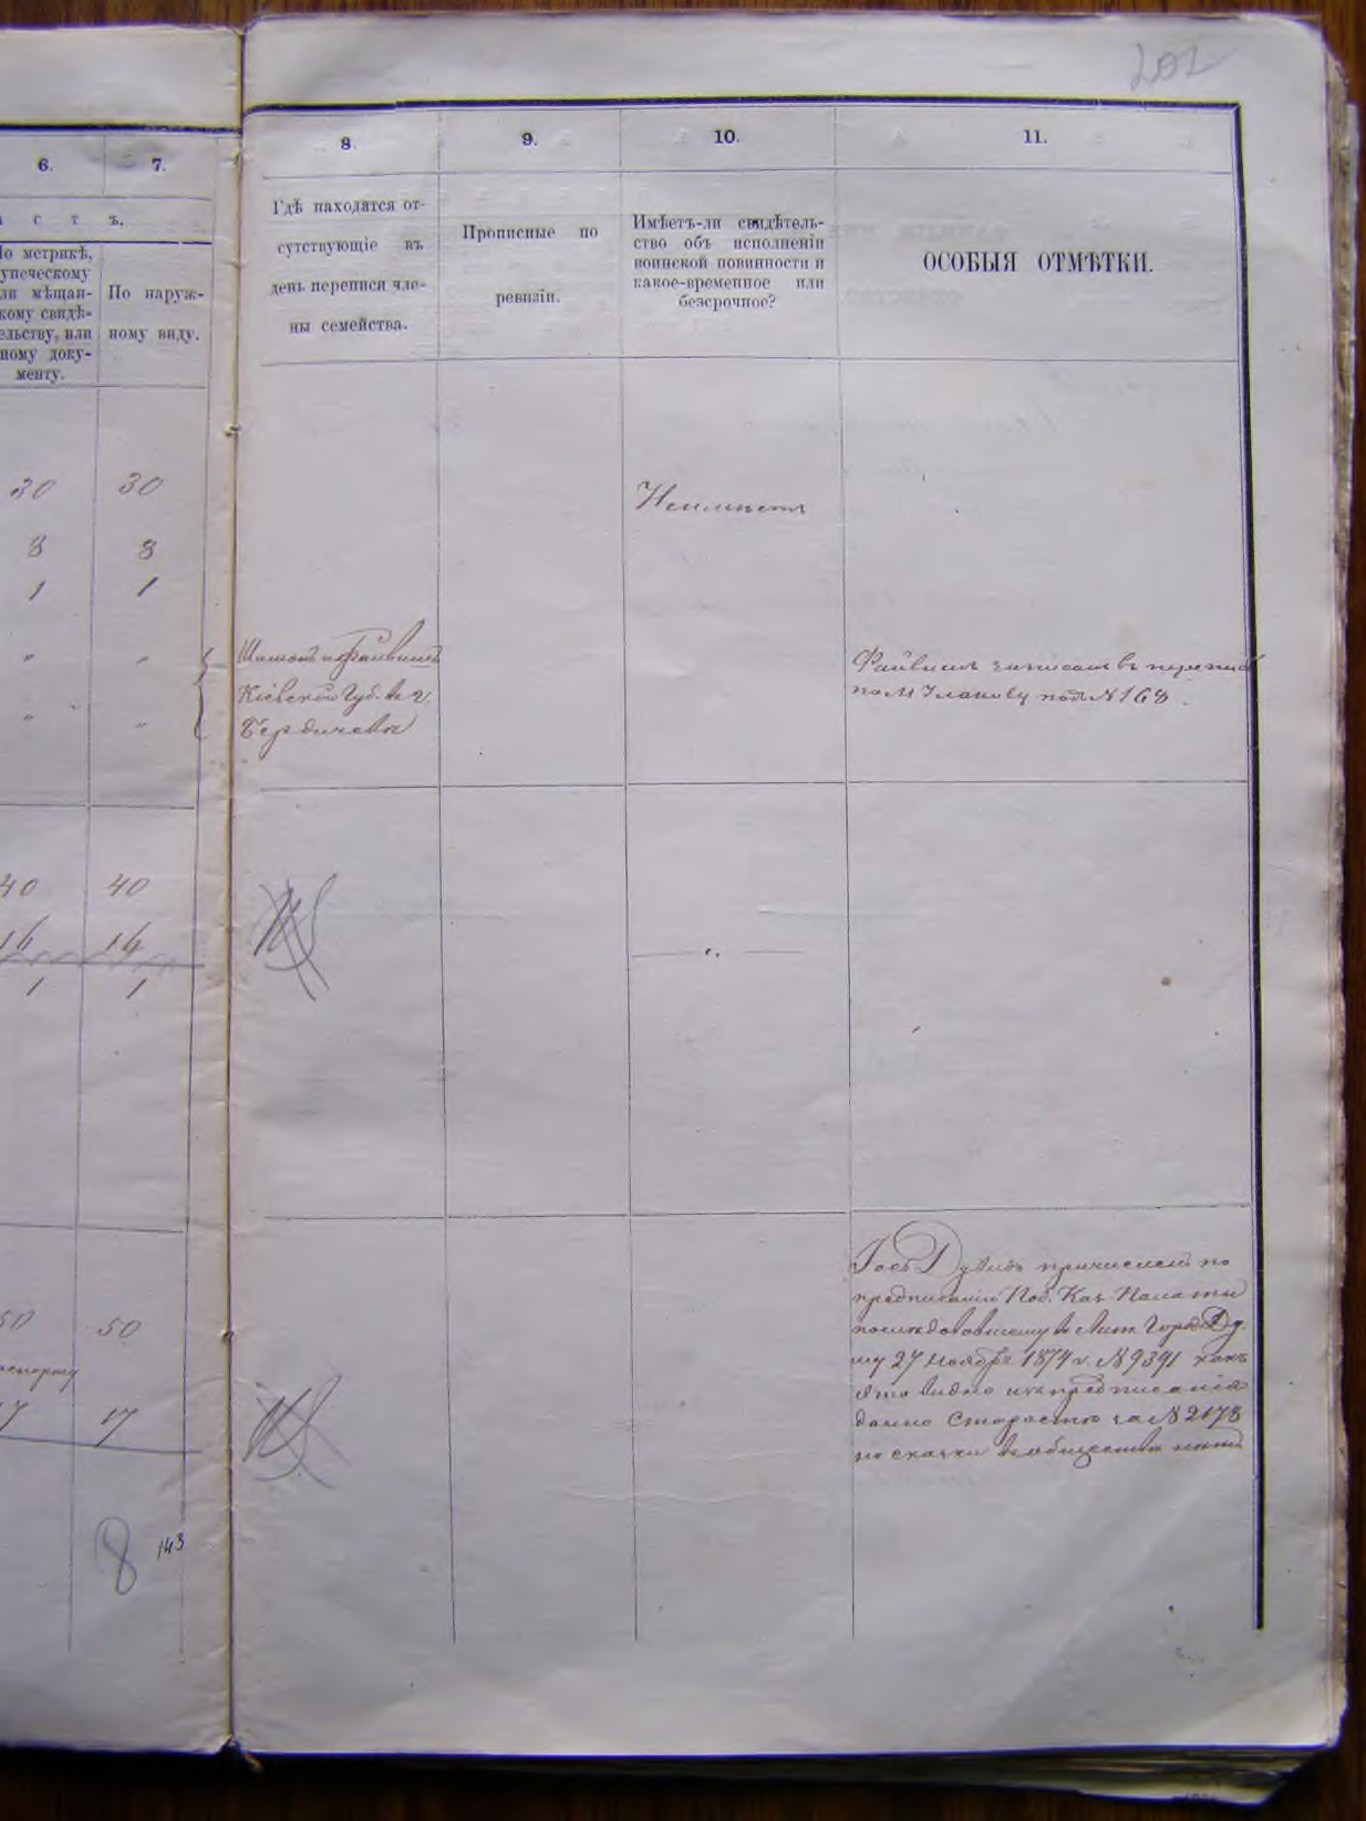 202
6.
7.
8.
9.
10.
11.
а с т ъ.
По метрикѣ,
купеческому
или мѣщан-
скому свидѣ-
тельству, или
иному доку-
менту.
По наруж-
ному виду.
Гдѣ находятся от-
сутствующіе въ
день переписи чле-
ны семейства.
Прописные по
ревизіи.
Имѣетъ-ли свидѣтель-
ство объ исполненіи
воинской повинности и
какое-временное или
безсрочное?
ОСОБЫЯ ОТМѢТКИ.
30 30
Неимѣетъ
8 8
1 1
" "
Шимонъ и Файвишъ
Кіевской Губ. въ г.
" "
Бердичевѣ
Файвишъ записанъ въ переписи
по М Уланову подъ № 168.
40 40
14 14
1 1
50 50
паспорту
17 17
8 143
Іось Дувидъ причисленъ по
предписанію Под. Каз. Палаты
послѣдовавшему въ Лит. Город. Ду.
му 27 Ноября 1874 г. № 9391 какъ
это видно изъ предписанія
данно Старостѣ за № 2178
но сказки въ обществѣ нѣтъ